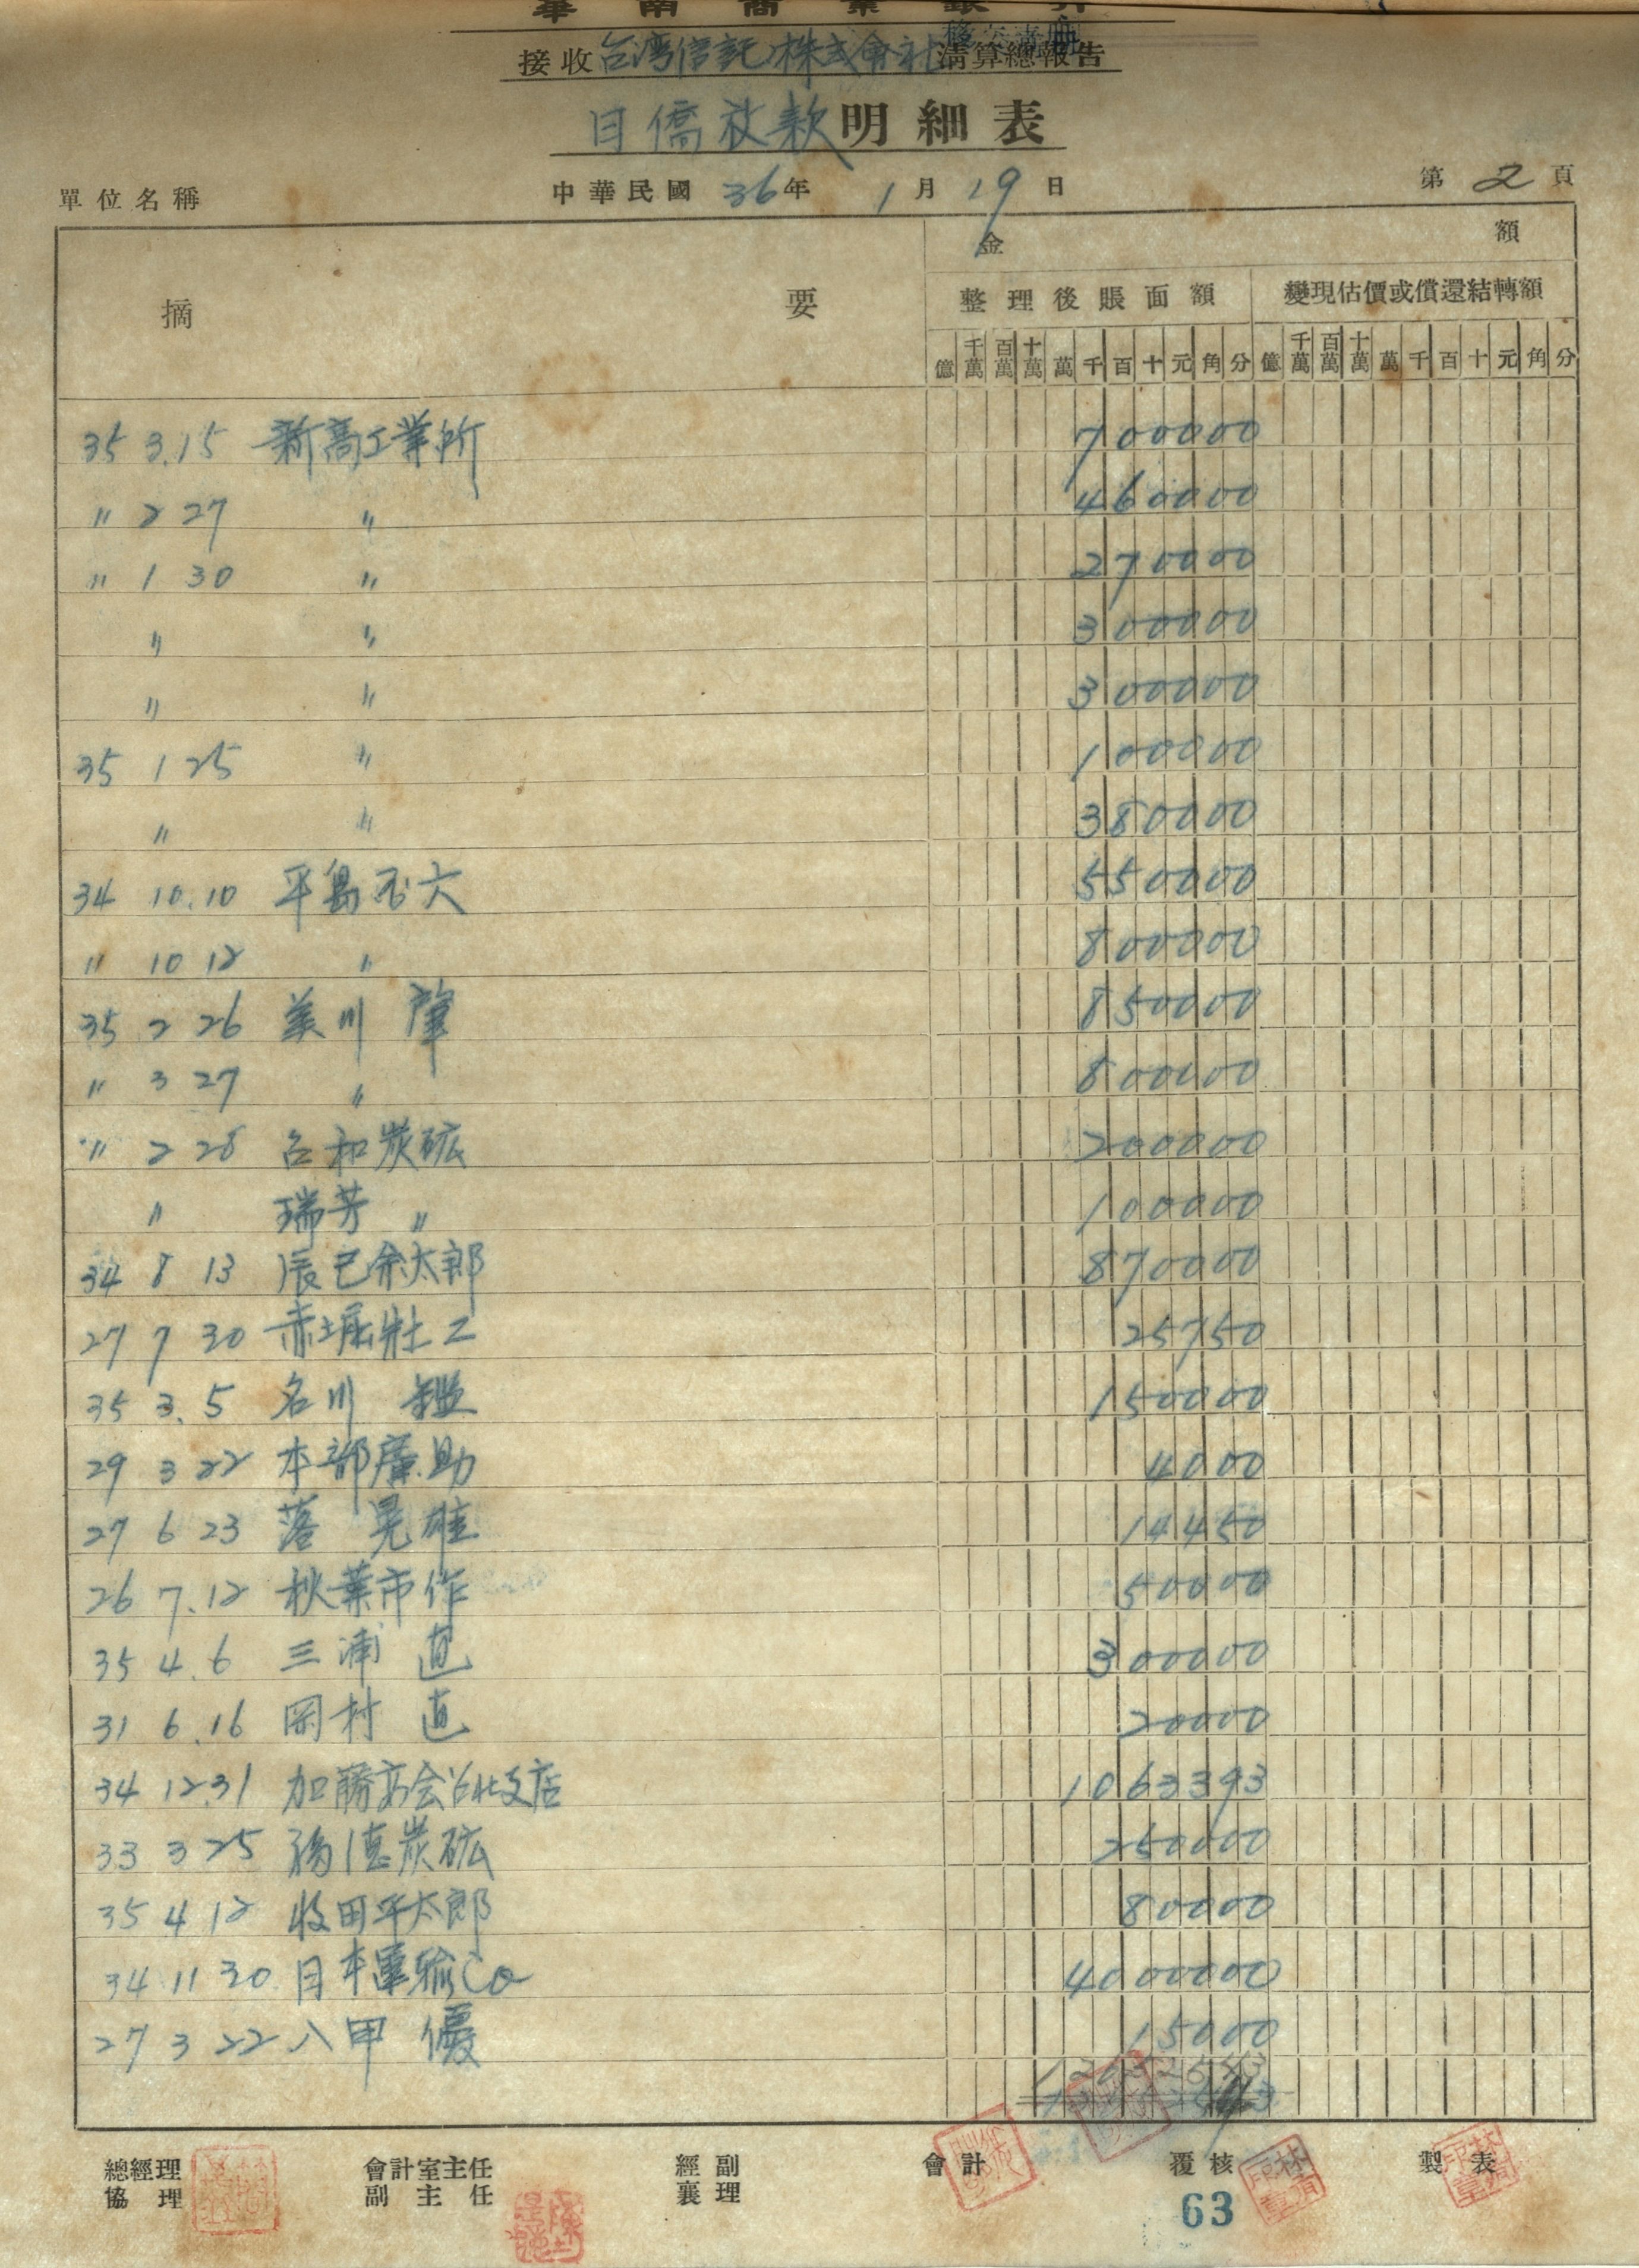 華南商業銀行
接收台湾信託株式會社清算總報告
移交清冊
日僑放款明細表
單位名稱 中華民國36年1月19日 第2頁
金額
摘要 整理後賬面額 變現估價或償還結轉額
億 千萬 百萬 十萬 萬 千 百 十 元 角 分 億 千萬 百萬 十萬 萬 千 百 十 元 角 分
35 3.15 新高工業所 700000
〃 2 27 〃 460000
〃 1 30 〃 270000
〃 〃 300000
〃 〃 300000
35 1 25 〃 100000
〃 〃 380000
34 10.10 平島 大 550000
〃 10 12 〃 800000
35 2 26 美川 肇 850000
〃 3 27 〃 800000
〃 2 28 台和炭砿 200000
〃 瑞芳 〃 100000
34 8 13 辰巳余太郎 870000
27 7 30 赤堀壮乙 25750
35 3.5 名川 鑑 150000
29 3 22 本部廉助 4000
27 6 23 落 晃雄 14450
26 7.12 秋葉市作 50000
35 4.6 三浦 直 300000
31 6.16 岡村 直 20000
34 12.31 加藤商会台北支店 1063393
33 3 25 德炭砿 250000
35 4 12 牧田平太郎 80000
34 11 30 日本運輸Co 4000000
27 3 22 八甲 優 15000
總經理 會計室主任 經副 會計 覆核 製表
協理 副主任 襄理
63